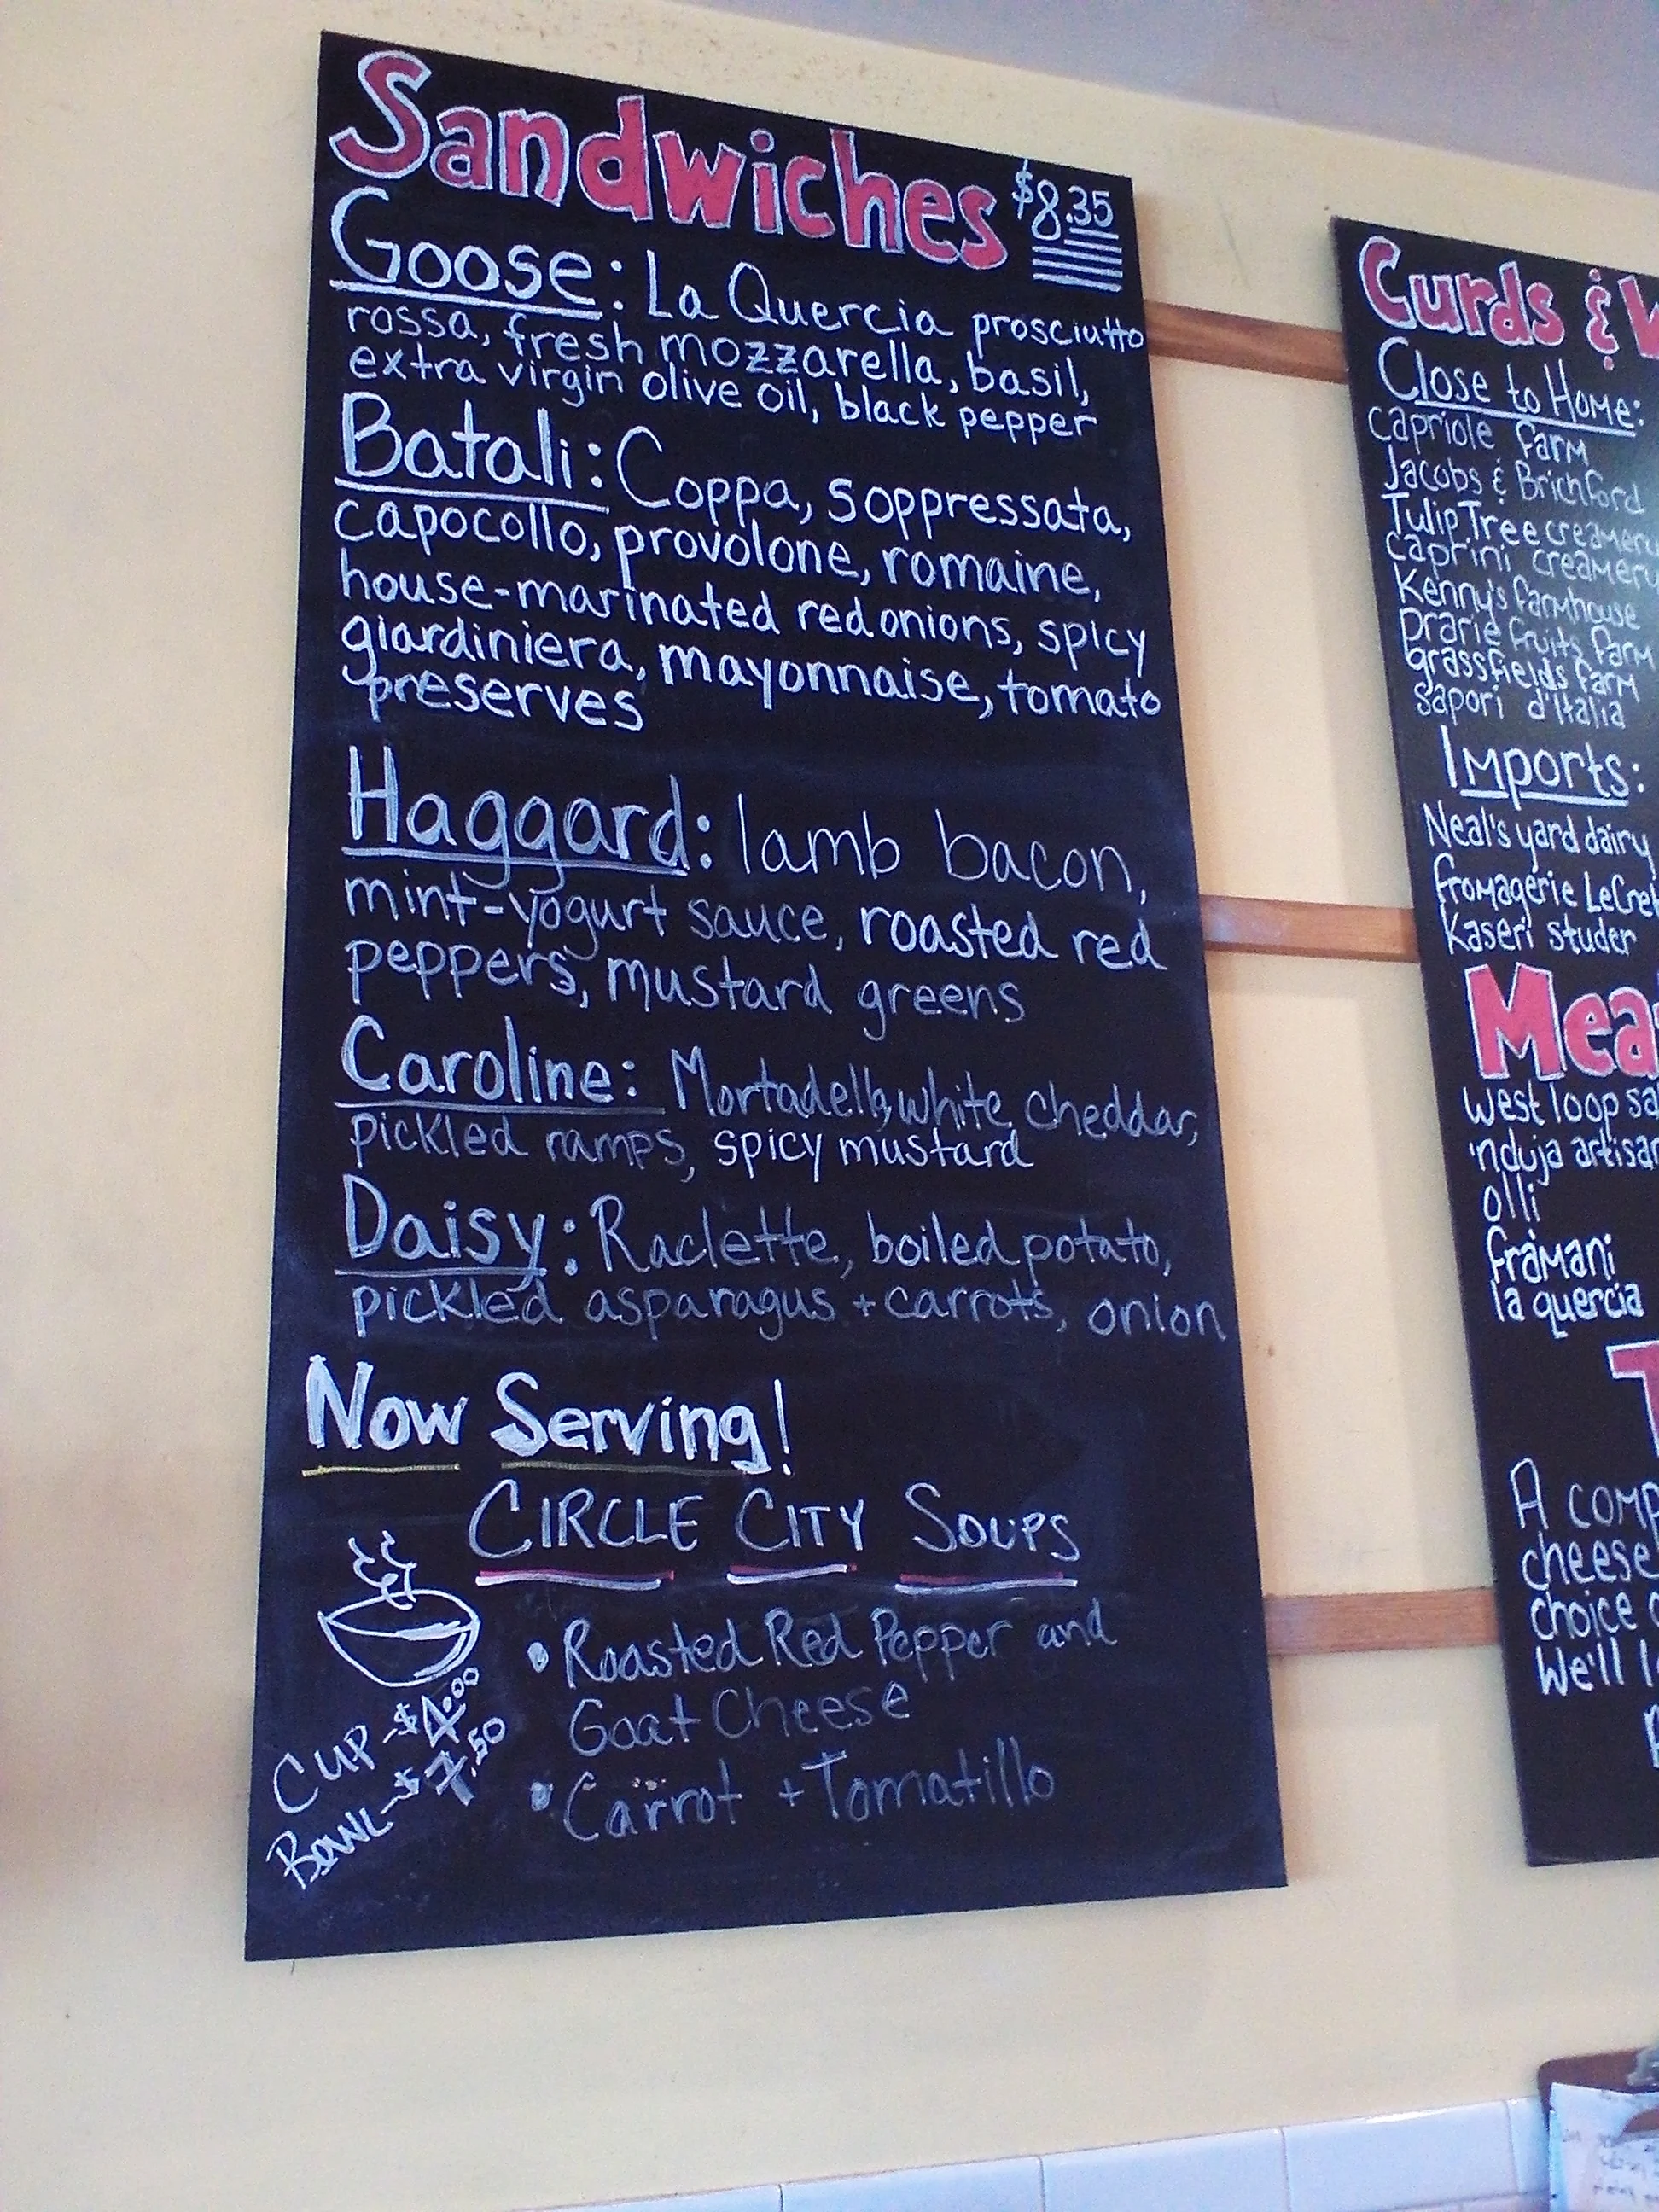 Sandwiches $8.35
Goose: La Quercia prosciutto
rossa, fresh mozzarella, basil,
extra virgin olive oil, black pepper
Batali: Coppa, soppressata,
capocollo, provolone, romaine,
house-marinated red onions, spicy
giardiniera, mayonnaise, tomato
preserves
Haggard: lamb bacon,
mint-yogurt sauce, roasted red
peppers, mustard greens
Caroline: Mortadella, white cheddar,
pickled ramps, spicy mustard
Daisy: Raclette, boiled potato,
pickled asparagus + carrots, onion
Now Serving!
CIRCLE CITY SOUPS
• Roasted Red Pepper and
Goat Cheese
• Carrot + Tomatillo
CUP - $4.00
BOWL - $7.50
Curds &
Close to Home:
Capriole farm
Jacobs & Brichford
Tulip Tree creamery
caprini creamery
Kenny's farmhouse
Prarie fruits farm
grassfields farm
sapori d'Italia
Imports:
Neal's yard dairy
fromagerie
Kaseri studer
Mea
west loop sa
'nduja artisan
olli
framani
la quercia
T
A comp
cheese
choice
We'll